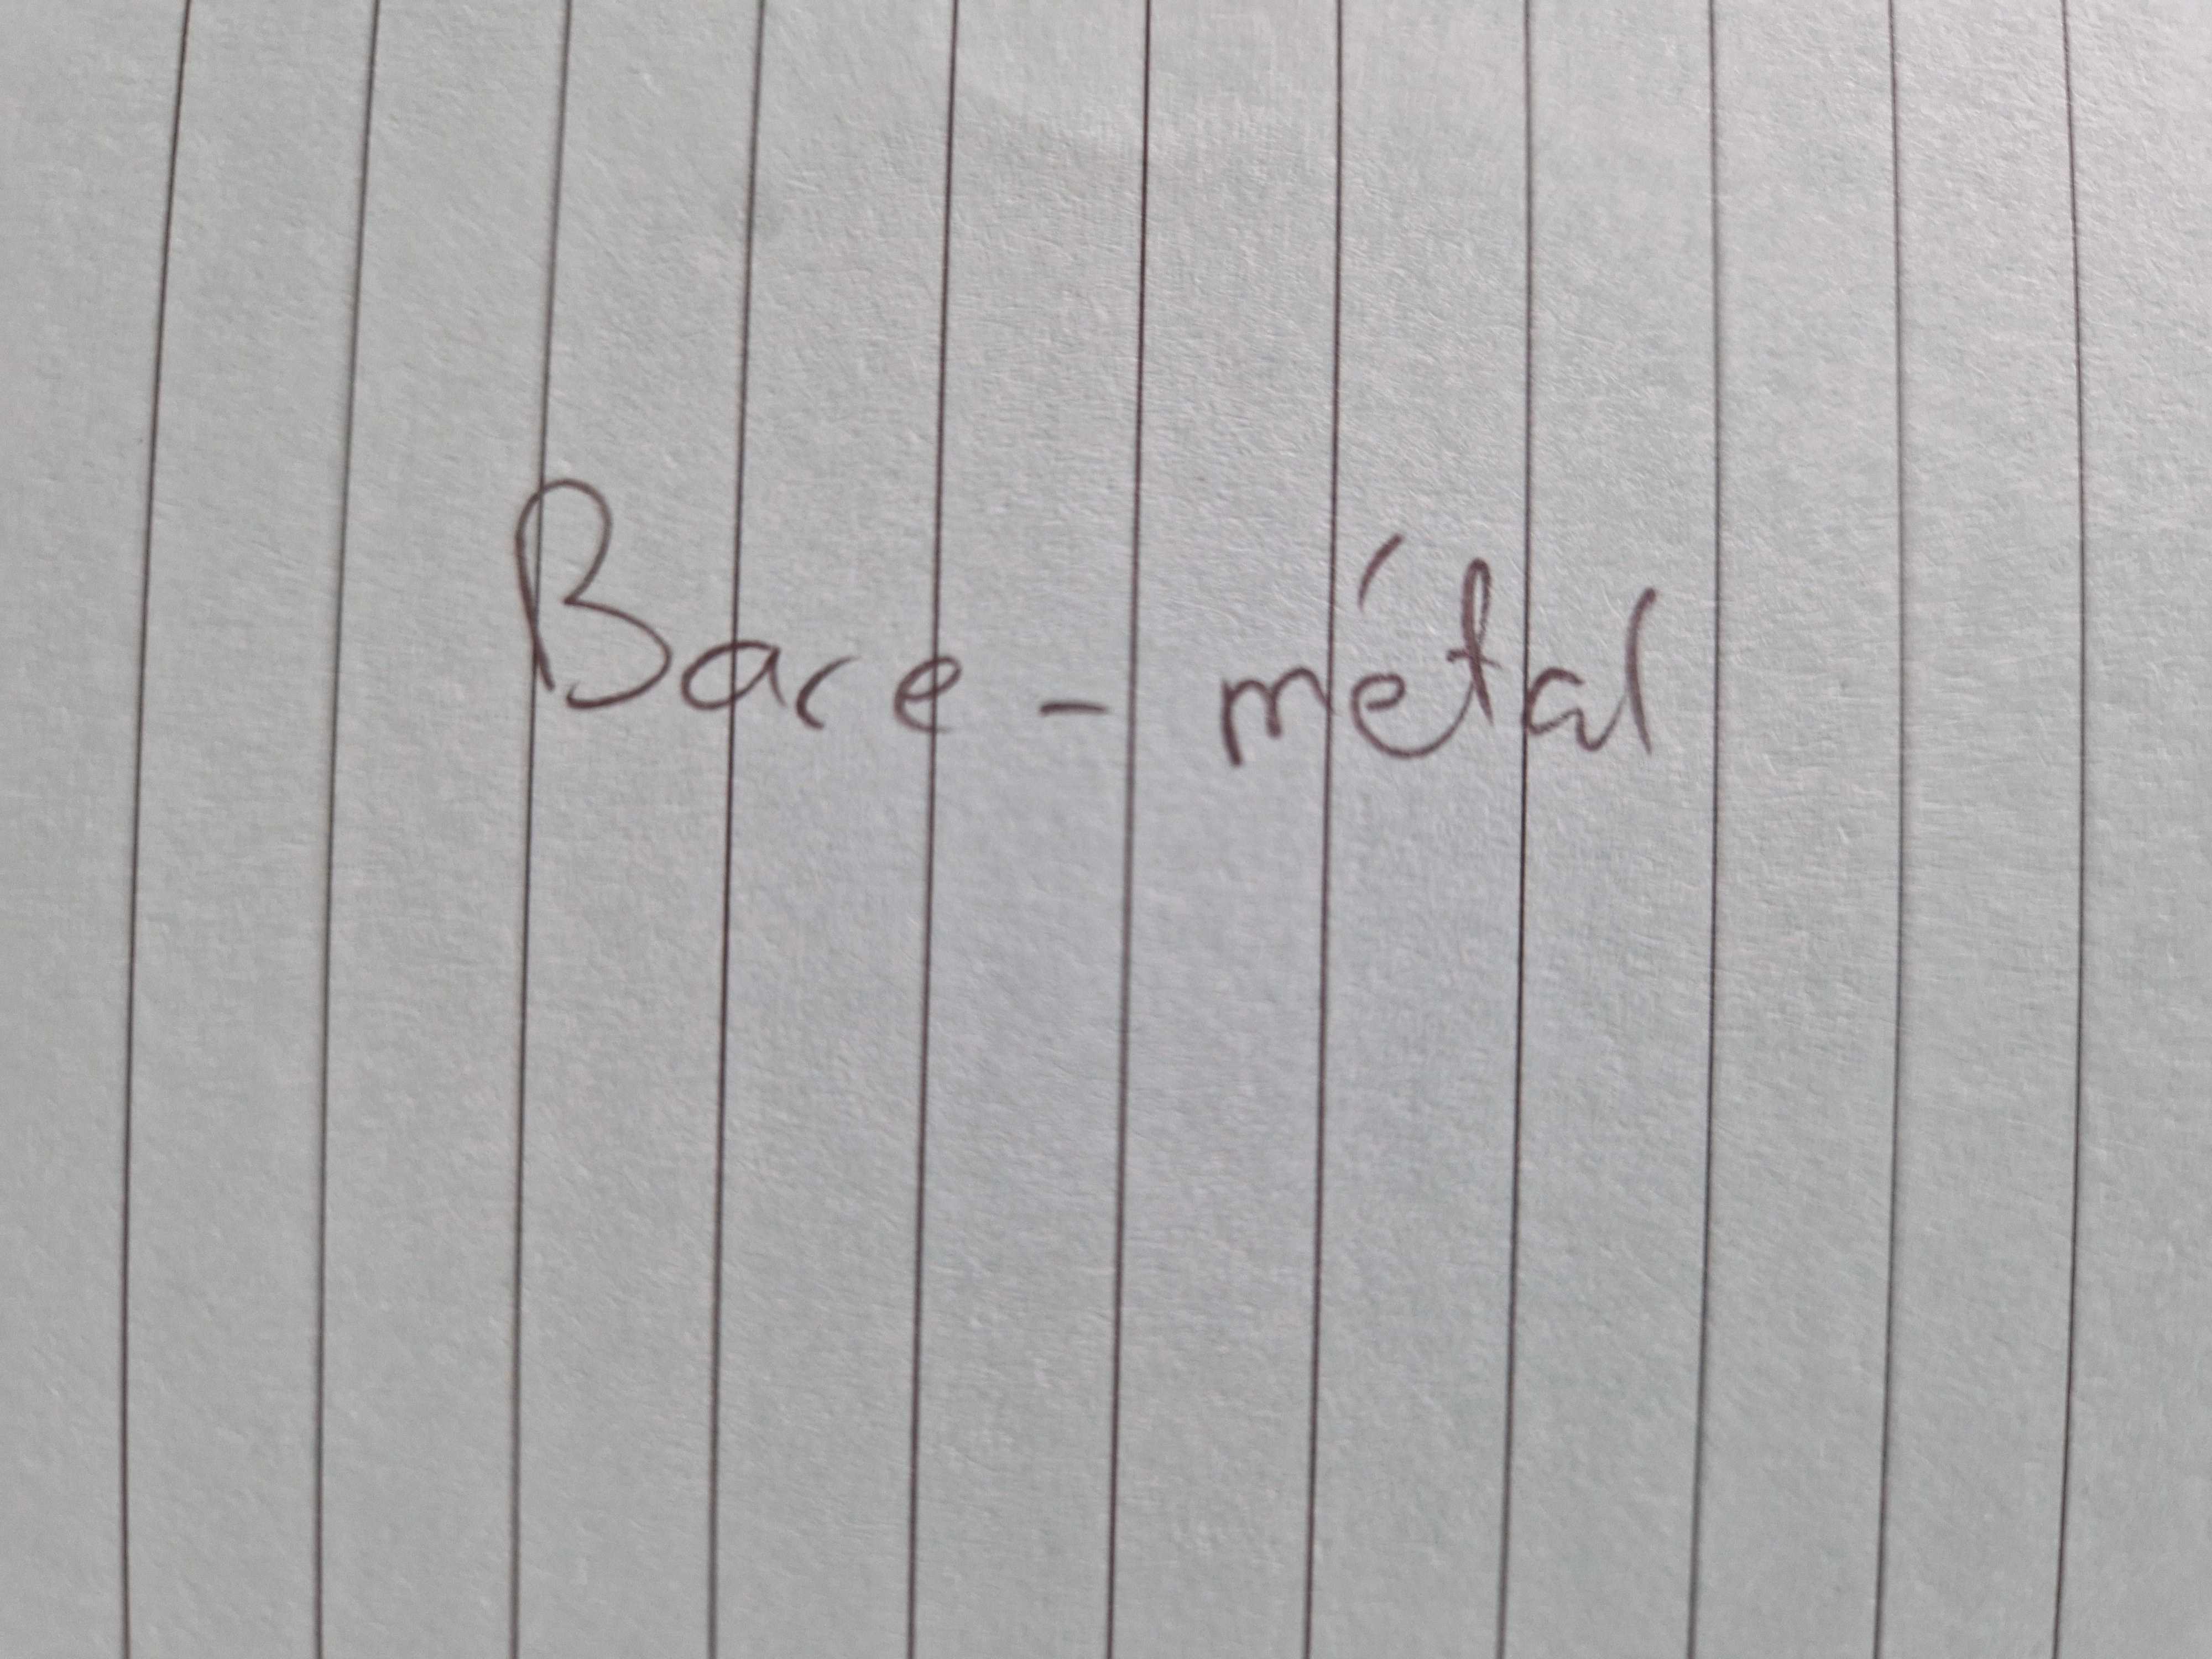 Bare - métal